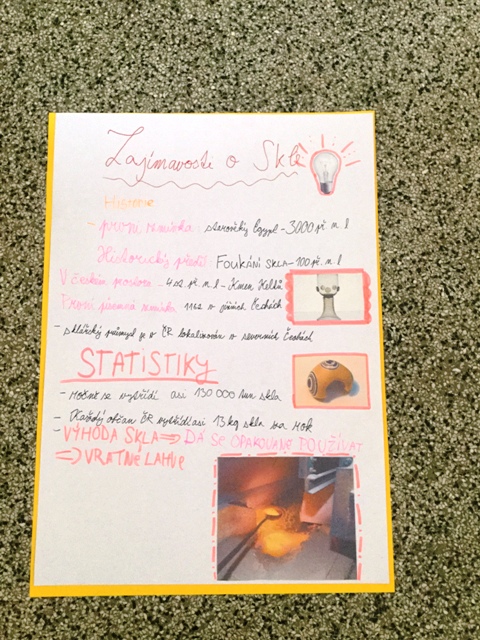 Zajímavosti o Skle
Historie
- první zmínka starověký Egypt - 3000 př. n. l
Historický předěl FOUKÁNÍ SKLA - 100 př. n. l
V českém prostoru - 4 st. př. n. l - Kmen Keltů
První písemná zmínka 1162 v jižních Čechách
- sklářský průmysl je v ČR lokalizován v severních Čechách
STATISTIKY
- Ročně se vytřídí asi 130 000 tun skla
- Každý občan ČR vytřídí asi 13 kg skla za rok
- VÝHODA SKLA ⇒ DÁ SE OPAKOVANĚ POUŽÍVAT
⇒ VRATNÉ LAHVE